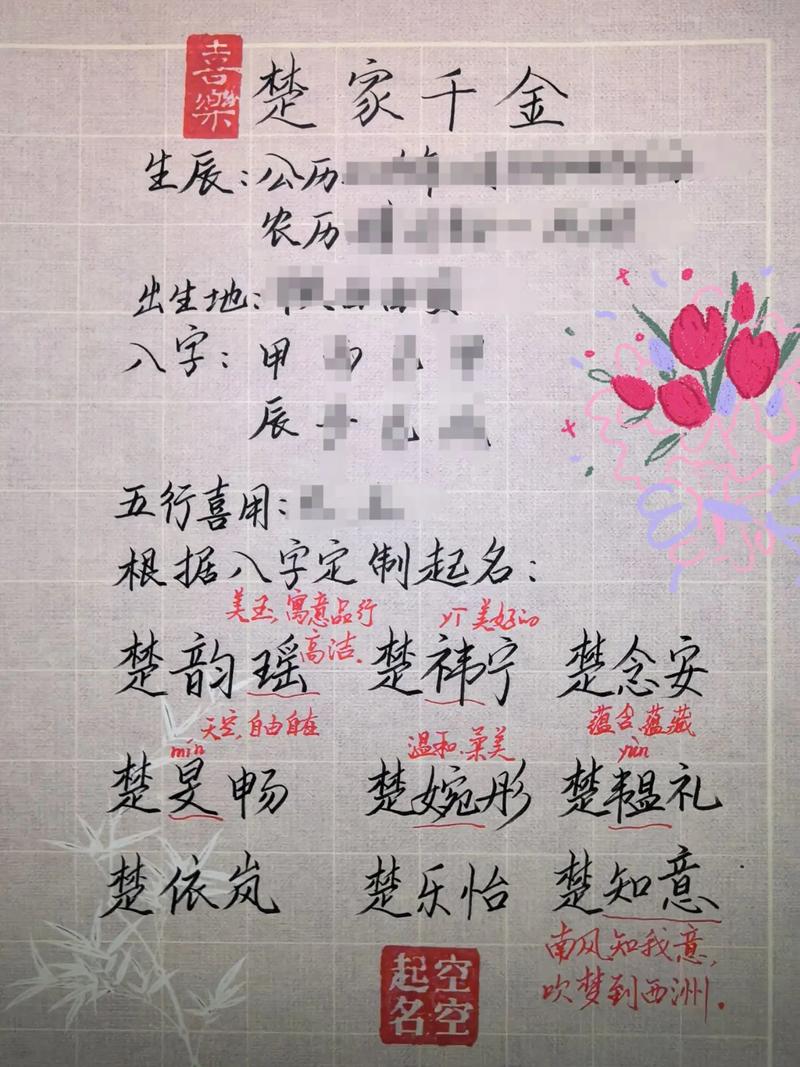 喜樂
楚家千金
生辰：公历
农历
出生地：
八字：甲
辰
五行喜用：
根据八字定制起名：
美玉，寓意品行高洁。
美好的
楚韵瑶 楚祎宁 楚念安
天空，自由自在
温和、柔美
蕴含、蕴藏
mín
yùn
楚旻畅 楚婉彤 楚韫礼
楚依岚 楚乐怡 楚知意
南风知我意，
吹梦到西洲。
空空起名